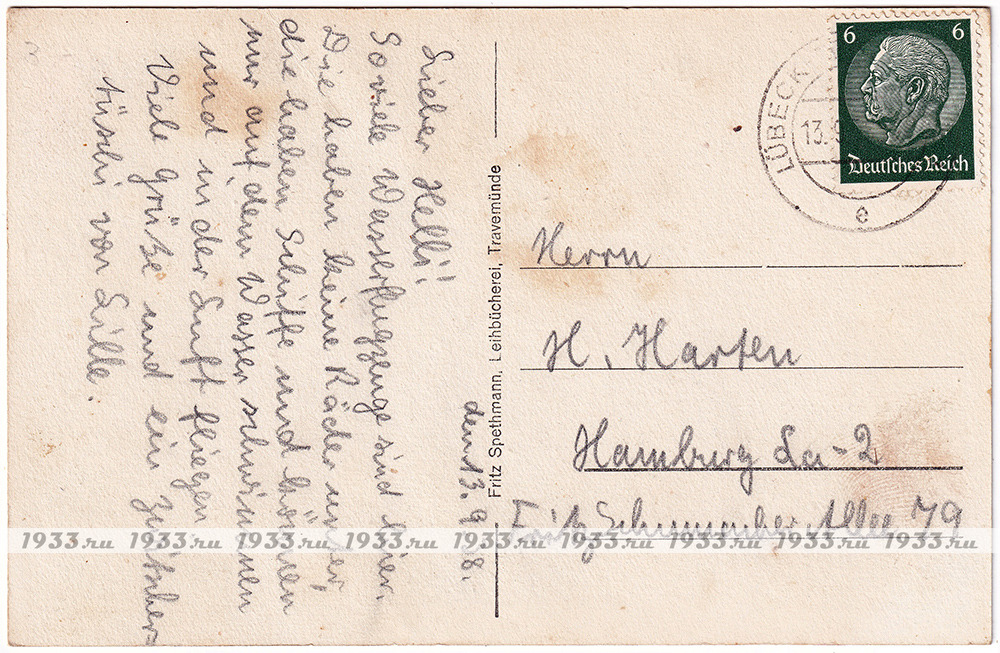 den 13. 9. 38.
Lieber Helli!
Soviele Wasserflugzeuge sind hier.
Die haben keine Räder unter,
die haben Schiffe und können
nur auf dem Wasser schwimmen
und in der Luft fliegen
Viele Grüße und ein
von Lille.
Fritz Spethmann, Leihbücherei, Travemünde
6 6
Deutsches Reich
LÜBECK-
13.9
e
Herrn
H. Harten
Hamburg La-2
Fritz Schumacher Allee 79
1933.ru 1933.ru 1933.ru 1933.ru 1933.ru 1933.ru 1933.ru 1933.ru 1933.ru 1933.ru